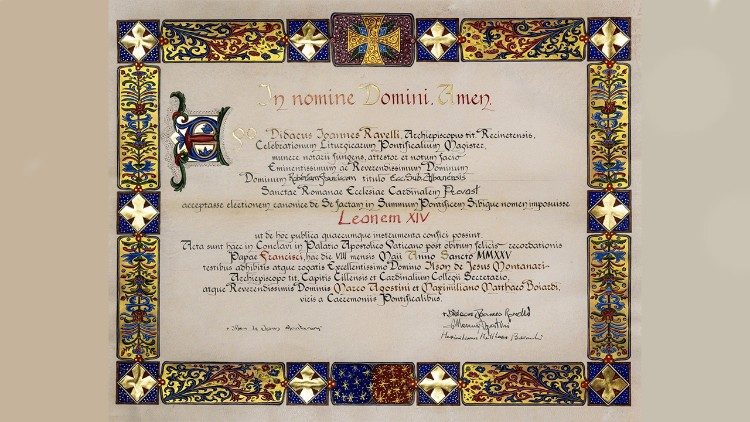 In nomine Domini. Amen.
Ego Didacus Ioannes Ravelli, Archiepiscopus tit. Recinetensis,
Celebrationum Liturgicarum Pontificalium Magister,
munere notarii fungens, attestor et notum facio
Eminentissimum ac Reverendissimum Dominum
Dominum Robertum Franciscum titulo Ecc. Sub. Albanensis
Sanctae Romanae Ecclesiae Cardinalem Prevost
acceptasse electionem canonice de Se factam in Summum Pontificem Sibique nomen imposuisse
Leonem XIV
ut de hoc publica quaecumque instrumenta confici possint.
Acta sunt haec in Conclavi in Palatio Apostolico Vaticano post obitum felicis recordationis
Papae Francisci, hac die VIII mensis Maii Anno Sancto MMXXV
testibus adhibitis atque rogatis Excellentissimo Domino Ilson de Jesus Montanari
Archiepiscopo tit. Capitis Cillensis et Cardinalium Collegii Secretario,
atque Reverendissimis Dominis Marco Agostini et Maximiliano Matthaeo Boiardi,
viris a Caeremoniis Pontificalibus.